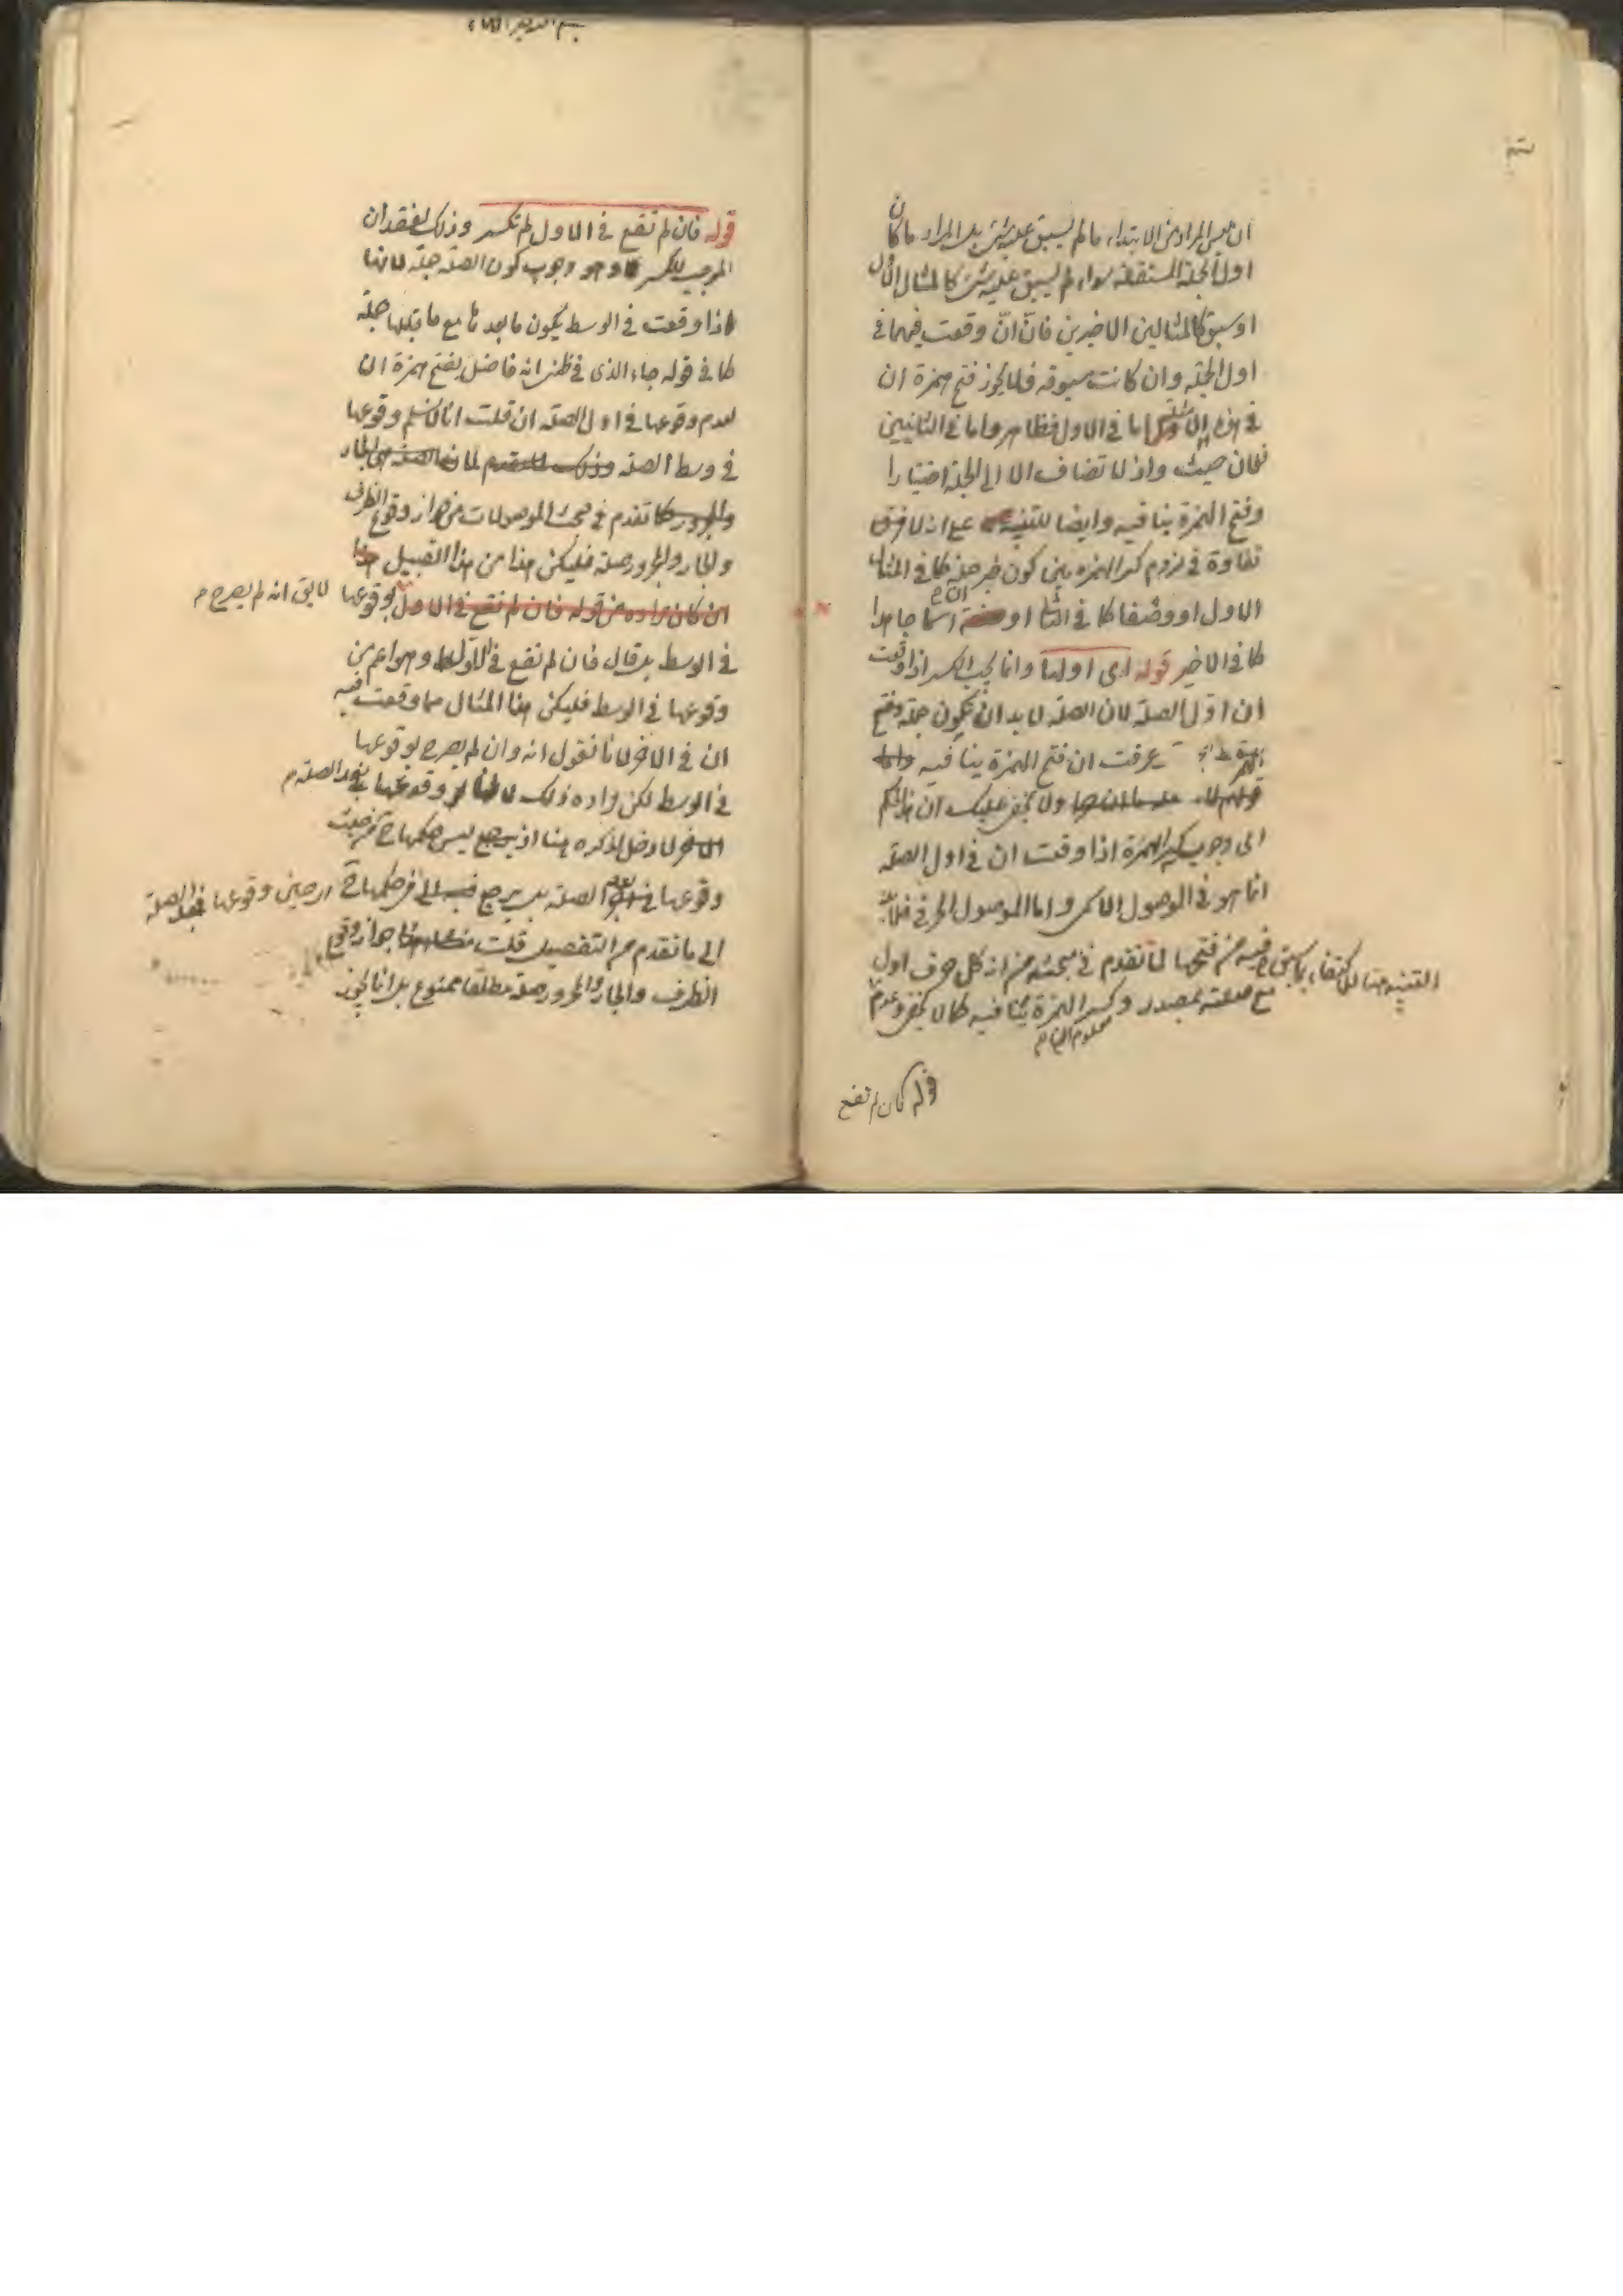 ان ليس المراد من الابتداء ما لم يسبق عليه شئ بل المراد ما كان
اول الجملة المستقلة سواء لم يسبق عليه شئ كالمثال الاول
او سبق كالمثالين الاخيرين فان انّ وقعت فيهما في
اول الجملة وان كانت مسبوقة فلا يجوز فتح همزة ان
في هذه اما في الاول فظاهر واما في الثانيين
فلان حيث واذ لا تضاف الا الى الجملة اختيارا
وفتح الهمزة ينافيه وايضا للتنبيه على انه لا فرق
تفاوة في لزوم كسر الهمزة بين كون خبر جملة كما في المثال
الاول او وصفا كما في الثاني او اسما جامدا
كما في الاخير قوله اى اولها وانما يجب الكسر اذا وقعت
ان اول الصلة لان الصلة لا بد ان تكون جملة وفتح
الهمزة عرفت ان فتح الهمزة ينافيه
ولا يخفى عليك ان هذا الحكم
اى وجوب كسر الهمزة اذا وقعت ان في اول الصلة
انما هو في الموصول الاسمى واما الموصول الحرفي فلا بد
فيه من فتحها لما تقدم في مبحثه من انه كل حرف اول
مع صلته بمصدر وكسر الهمزة ينافيه كما لا يخفى وعدم
التنبيه هنا للاكتفاء بما سبق
معلوم
قوله فان لم تقع
قوله فان لم تقع في الاول لم تكسر وذلك لفقدان
الموجب للكسر وهو وجوب كون الصلة جملة لانها
اذا وقعت في الوسط يكون ما بعدها مع ما قبلها جملة
كما في قوله جاء الذى في ظني انه فاضل بفتح همزة ان
لعدم وقوعها في اول الصلة ان قلت انا لا نسلم وقوعها
في وسط الصلة
كما تقدم في مبحث الموصولات من جواز وقوع الظرف
والجار والمجرور صلة فليكن هذا من هذا القبيل
ان كان مراده من قوله فان لم تقع في الاول بوقوعها لا يق انه لم يصرح
في الوسط بل قال فان لم تقع في الاول وهو اعم من
وقوعها في الوسط فليكن هذا المثال مما وقعت فيه
ان في الاخر لانا نقول انه وان لم يصرح بوقوعها
في الوسط لكن مراده ذلك وقوعها بعد الصلة
لا دخل لذكره هنا اذ ليس حكمها ح من حيث
وقوعها بعد الصلة بل يرجع حكمها ح اى حين وقوعها بعد الصلة
الى ما تقدم من التفصيل قلت جواز وقوع
الظرف والجار والمجرور صلة مطلقا ممنوع بل انما يجوز